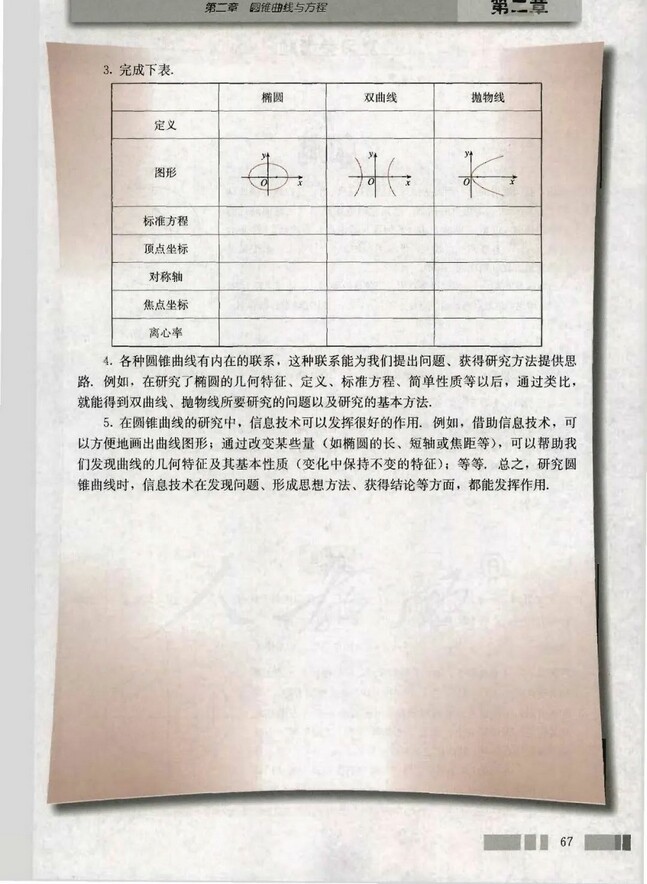 第二章 圆锥曲线与方程
第二章
3. 完成下表.
椭圆 双曲线 抛物线
定义
图形
y O x y O x y O x
标准方程
顶点坐标
对称轴
焦点坐标
离心率
4. 各种圆锥曲线有内在的联系，这种联系能为我们提出问题、获得研究方法提供思
路. 例如，在研究了椭圆的几何特征、定义、标准方程、简单性质等以后，通过类比，
就能得到双曲线、抛物线所要研究的问题以及研究的基本方法.
5. 在圆锥曲线的研究中，信息技术可以发挥很好的作用. 例如，借助信息技术，可
以方便地画出曲线图形；通过改变某些量（如椭圆的长、短轴或焦距等），可以帮助我
们发现曲线的几何特征及其基本性质（变化中保持不变的特征）；等等. 总之，研究圆
锥曲线时，信息技术在发现问题、形成思想方法、获得结论等方面，都能发挥作用.
人教版
67